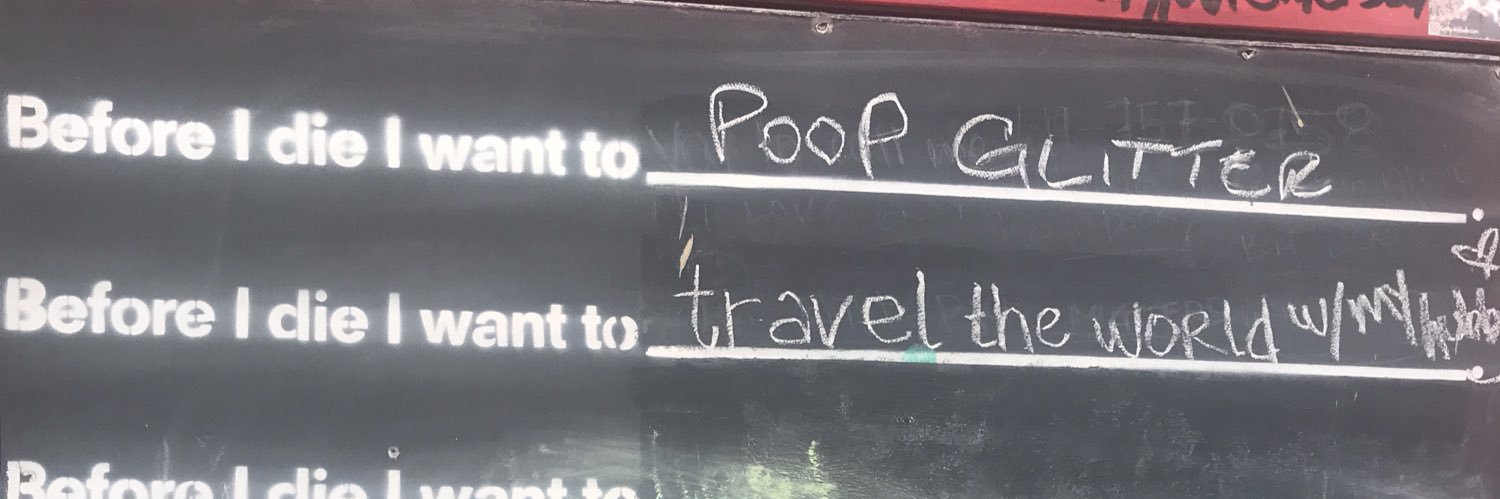 Before I die I want to POOP GLITTER.
Before I die I want to travel the WORLD w/ my hubby.
Before I die I want to